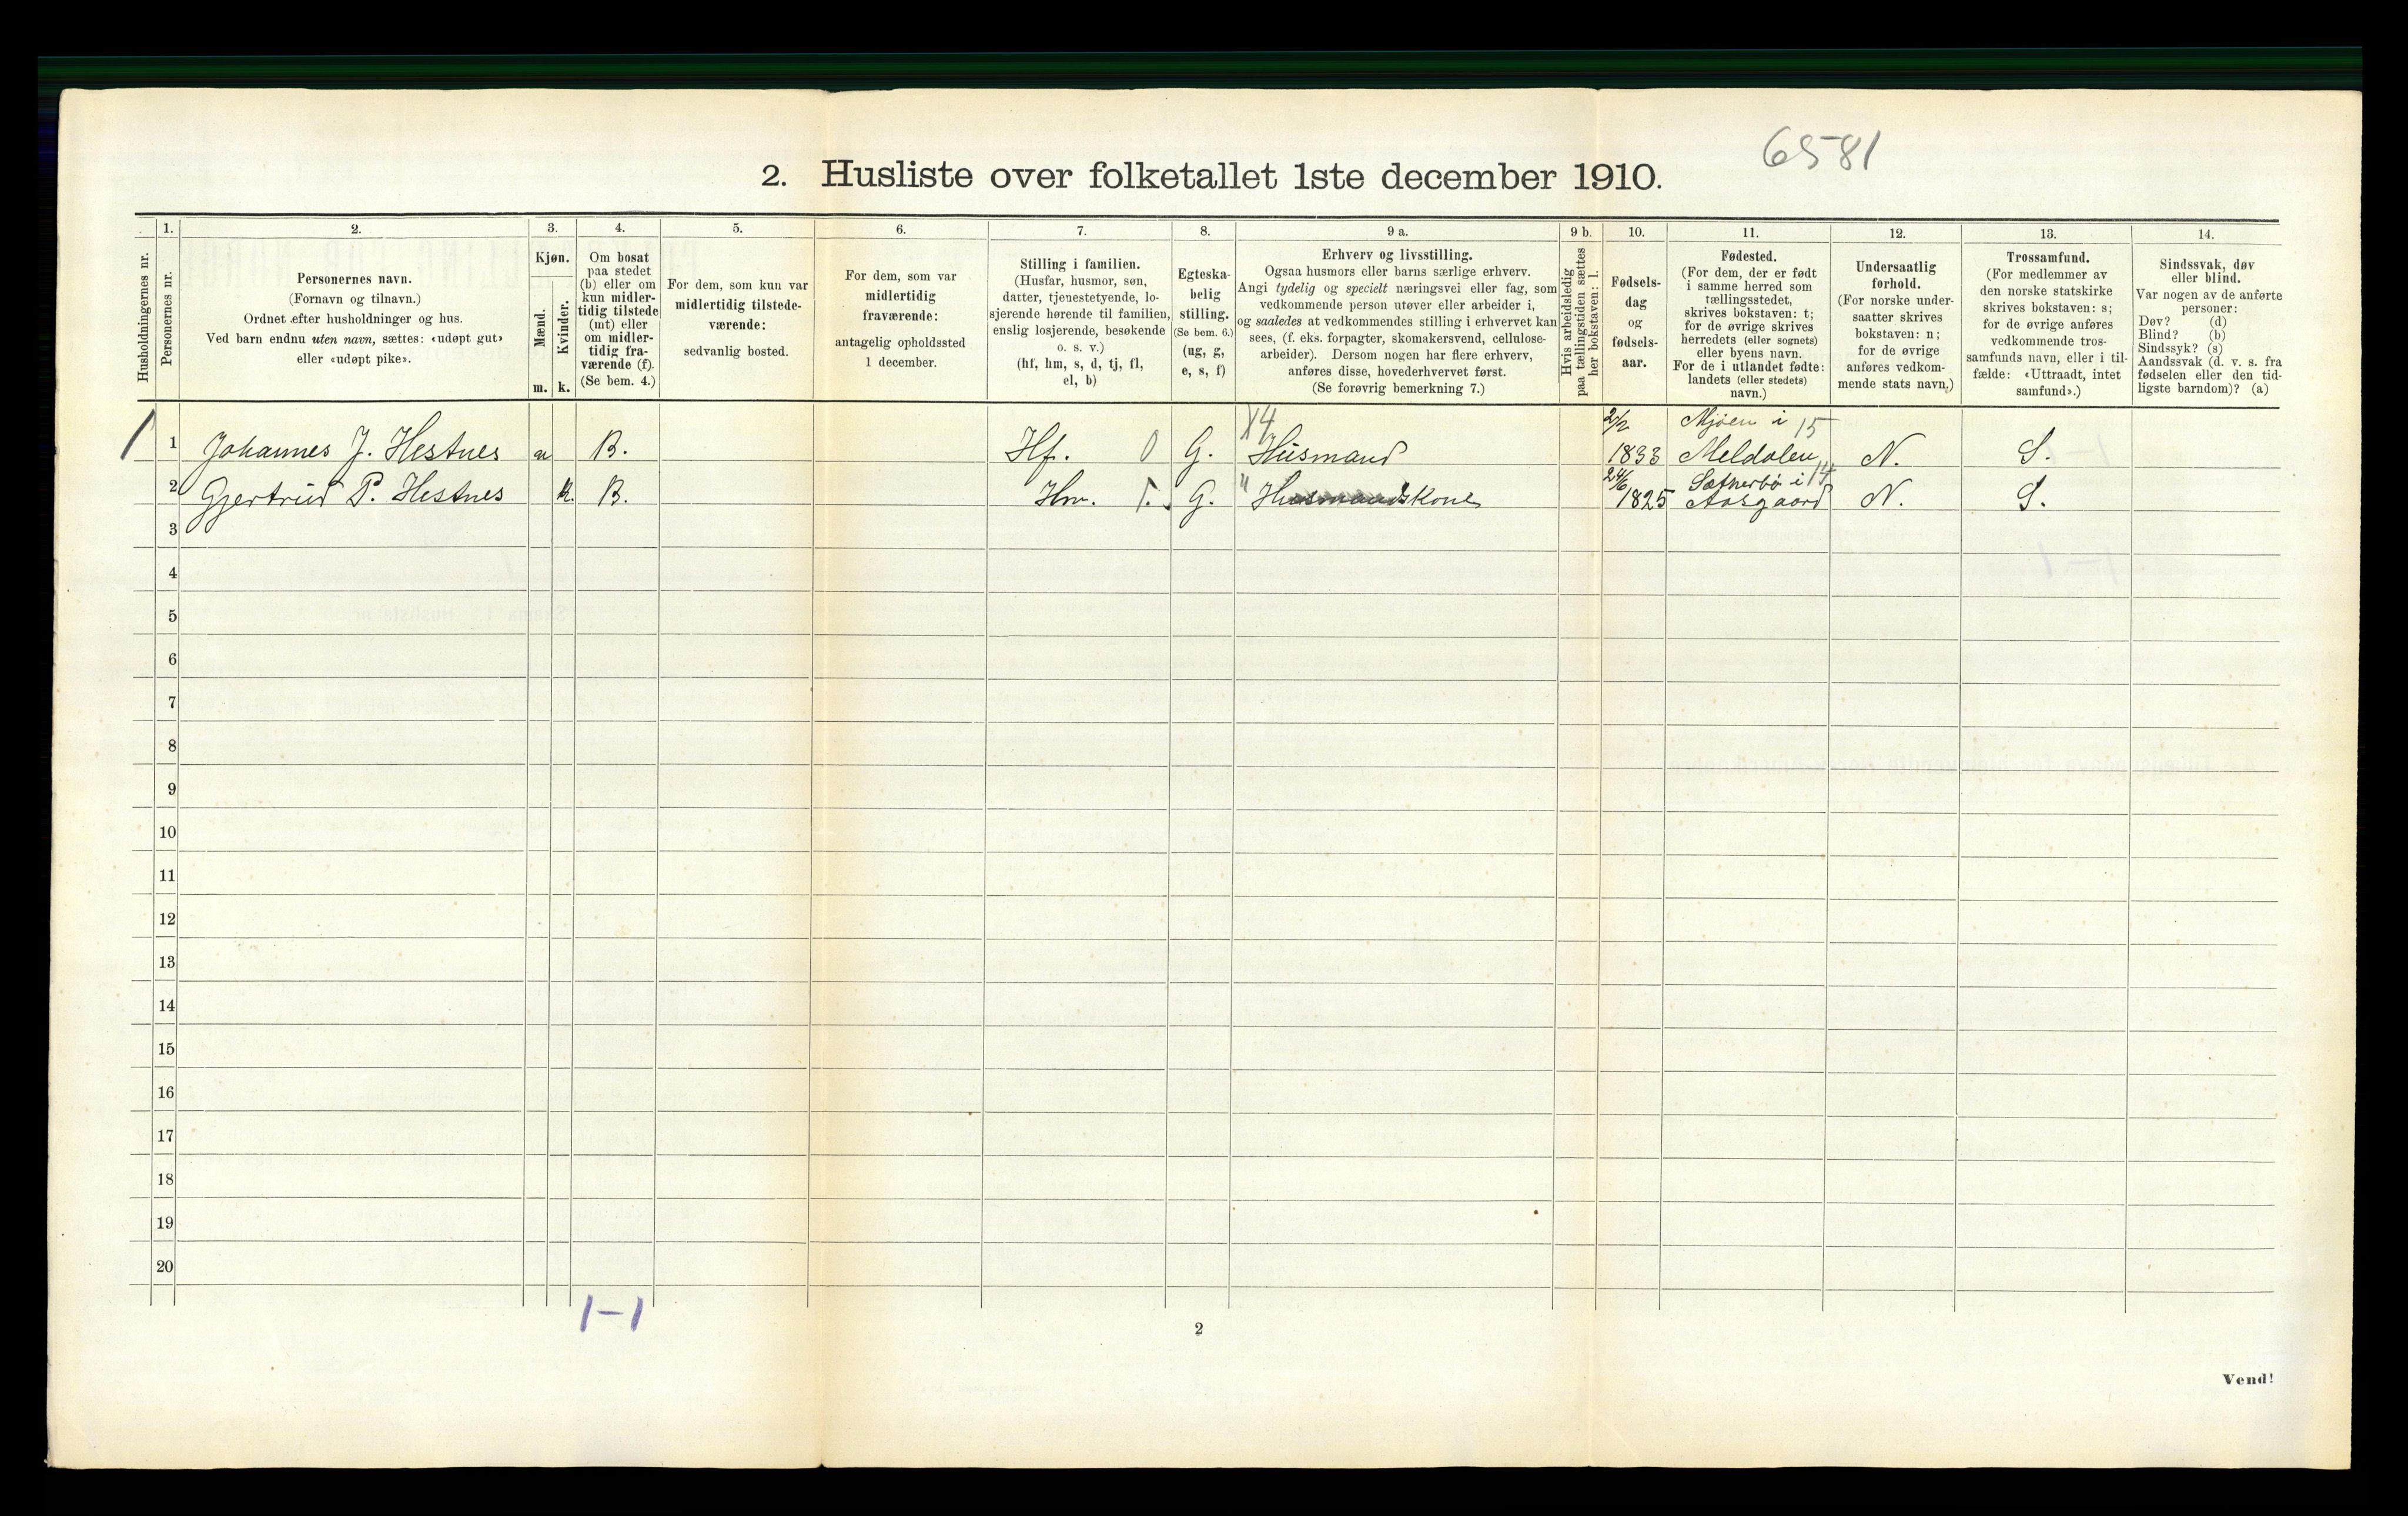 6581
2. Husliste over folketallet 1ste december 1910.
Husholdningernes nr.
1.
Personernes nr.
2.
Personernes navn.
(Fornavn og tilnavn.)
Ordnet efter husholdninger og hus.
Ved barn endnu uten navn, sættes: «udøpt gut»
eller «udøpt pike».
3.
Kjøn.
Mænd.
Kvinder.
m. k.
4.
Om bosat
paa stedet
(b) eller om
kun midler-
tidig tilstede
(mt) eller
om midler-
tidig fra-
værende (f).
(Se bem. 4.)
5.
For dem, som kun var
midlertidig tilstede-
værende:
sedvanlig bosted.
6.
For dem, som var
midlertidig
fraværende:
antagelig opholdssted
1 december.
7.
Stilling i familien.
(Husfar, husmor, søn,
datter, tjenestetyende, lo-
sjerende hørende til familien,
enslig losjerende, besøkende
o. s. v.)
(hf, hm, s, d, tj, fl,
el, b)
8.
Egteska-
belig
stilling.
(Se bem. 6.)
(ug, g,
e, s, f)
9 a.
Erhverv og livsstilling.
Ogsaa husmors eller barns særlige erhverv.
Angi tydelig og specielt næringsvei eller fag, som
vedkommende person utøver eller arbeider i,
og saaledes at vedkommendes stilling i erhvervet kan
sees, (f. eks. forpagter, skomakersvend, cellulose-
arbeider). Dersom nogen har flere erhverv,
anføres disse, hovederhvervet først.
(Se forøvrig bemerkning 7.)
9 b.
Hvis arbeidsledig
paa tællingstiden sættes
her bokstaven: l.
10.
Fødsels-
dag
og
fødsels-
aar.
11.
Fødested.
(For dem, der er født
i samme herred som
tællingsstedet,
skrives bokstaven: t;
for de øvrige skrives
herredets (eller sognets)
eller byens navn.
For de i utlandet fødte:
landets (eller stedets)
navn.)
12.
Undersaatlig
forhold.
(For norske under-
saatter skrives
bokstaven: n;
for de øvrige
anføres vedkom-
mende stats navn.)
13.
Trossamfund.
(For medlemmer av
den norske statskirke
skrives bokstaven: s;
for de øvrige anføres
vedkommende tros-
samfunds navn, eller i til-
fælde: «Uttraadt, intet
samfund».)
14.
Sindssvak, døv
eller blind.
Var nogen av de anførte
personer:
Døv? (d)
Blind? (b)
Sindssyk? (s)
Aandssvak (d. v. s. fra
fødselen eller den tid-
ligste barndom)? (a)
X4 2/2 Mjøen i 15
1 1 Johannes J. Hestnes m B. Hf. 0 G. Husmand 1833 Meldalen N. S.
24/6 Sætherbö i 14
2 Gjertrud P. Hestnes k. B. Hm. G. " Husmandskone 1825 Aasgaard N. S.
3
4
5
6
7
8
9
10
11
12
13
14
15
16
17
18
19
20
1-1
2
Vend!